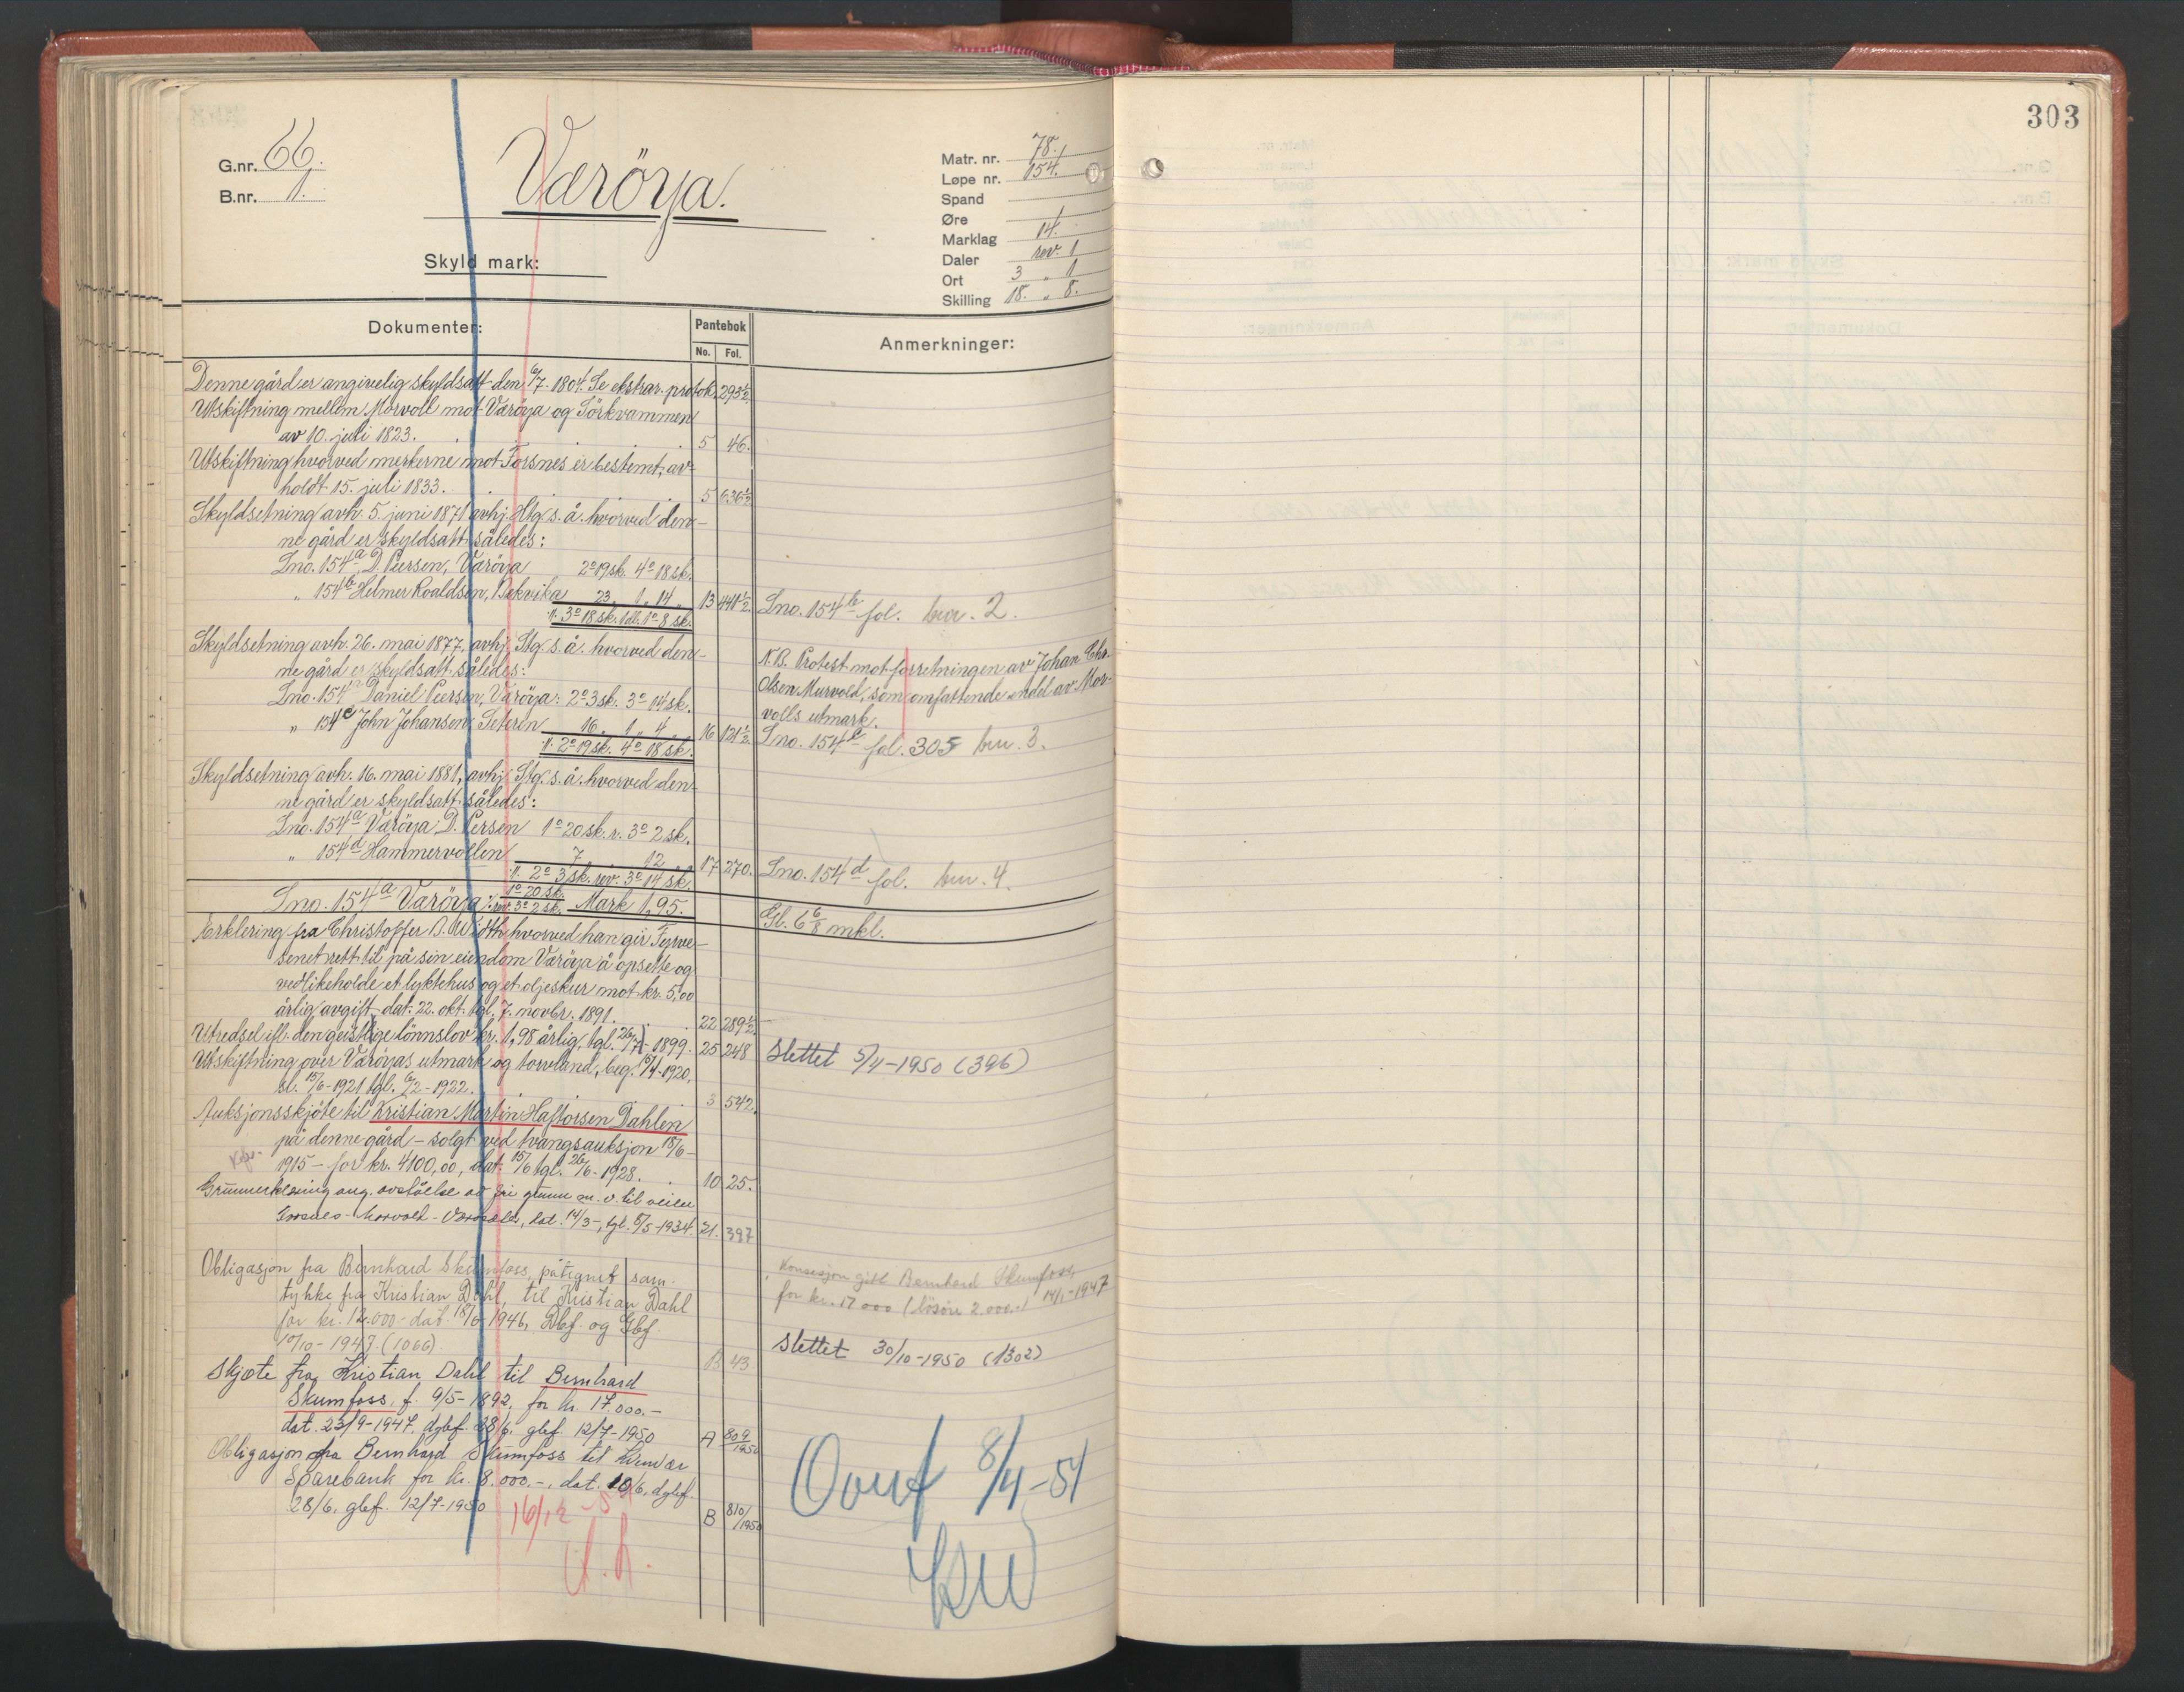 303
G.nr. 66.
B.nr. 1.
Væröya.
Skyld mark:
Matr. nr. 78.
Løpe nr. 154.
Spand
Øre
Marklag 14.
Daler rev. 1
Ort 3 „ 1
Skilling 18. „ 8.
Dokumenter:
Pantebok
No. Fol.
Anmerkninger:
Denne gård er angivelig skyldsatt den 6/7-1804. Se ekstrar. protok. 293½.
Utskiftning mellem Morvoll mot Værøya og Sörkvammen
av 10. juli 1823. 5 46.
Utskiftning hvorved merkerne mot Forsnes er bestemt, av-
holdt 15. juli 1833. 5 636½
Skyldsetning avh. 5. juni 1871 avhj. Htg. s. å. hvorved den-
ne gård er skyldsatt således:
Lno. 154a D. Persen, Værøya 2o 19 sk. 4o 18 sk.
„ 154b Helmer Roaldsen, Bekvika 23 „ 1 „ 14 „ 13 441½. Lno. 154b fol. bnr. 2.
÷ 3o 18 sk. 1 dl. 1o 8 sk.
Skyldsetning avh. 26. mai 1877, avhj. Stg. s. å. hvorved den-
ne gård er skyldsatt således:
Lno. 154a Daniel Peersen, Værøya: 2o 3 sk. 3o 14 sk.
„ 154c John Johansen Seteren 16 „ 1 „ 4 „ 16 121½.
÷ 2o 19 sk. 4o 18 sk.
N.B. Protest mot forretningen av Johan Chr.
Olsen Murvold, som omfattende endel av Mor-
volls utmark.
Lno. 154c fol. 305 bnr. 3.
Skyldsetning avh. 16. mai 1881, avhj. Stg. s. å. hvorved den-
ne gård er skyldsatt således:
Lno. 154a Værøya D. Persen 1o 20 sk. r. 3o 2 sk.
„ 154d Hammervollen 7 12 „ 17 270. Lno. 154d fol. bnr. 4.
÷ 2o 3 sk. rev. 3o 14 sk.
Lno. 154a Værøya: 1o 20 sk. rev. 3o 2 sk. Mark 1,95. Gl. 6 6/8 mkl.
Erklering fra Christoffer A. Width hvorved han gir Fyrve-
senet rett til på sin eiendom Værøya å opsette og
vedlikeholde et lyktehus og et oljeskur mot kr. 5,00
årlig avgift, dat. 22. okt. tgl. 7. novbr. 1891. 22 289½.
Utredsel ifl. den geistlige lønnslov kr. 1,98 årlig, tgl. 26/7-1899. 25 248 Slettet 5/4-1950 (396)
Utskiftning over Værøyas utmark og torvland, beg. 15/4-1920,
sl. 15/6-1921 tgl. 6/2-1922. 3 542.
Auksjonsskjöte til Kristian Martin Haftorsen Dahlen
på denne gård – solgt ved tvangsauksjon 18/6-
1915 – for kr. 4100,00, dat. 15/6 tgl. 26/6-1928. 10 25.
Grunnerklering ang. avståelse av fri grunn m. v. til veien
Forsnes - Morvold - Værødalen, dat. 14/3-, tgl. 5/5-1934. 21. 397
Obligasjon fra Bernhard Skumfoss, påtegnet sam-
tykke fra Kristian Dahl, til Kristian Dahl
for kr. 12.000 - dat. 18/6 1946, Dbf. og Gbf.
10/10-1947. (1066) B 43
Konsesjon gitt Bernhard Skumfoss,
for kr. 17 000 (løsøre 2.000.-) 14/1-1947
Slettet 30/10-1950 (1302)
Skjøte fra Kristian Dahl til Bernhard
Skumfoss, f. 9/5-1892, for kr. 17.000.-
dat. 23/9-1947, dgbf. 28/6, gbf. 12/7-1950 A 809/1950
Obligasjon fra Bernhard Skumfoss til Hemne
Sparebank for kr. 8.000.-, dat. 10/6, dgbf.
28/6, gbf. 12/7-1950 B 810/1950
16/12-5
Ovnf 8/4-54